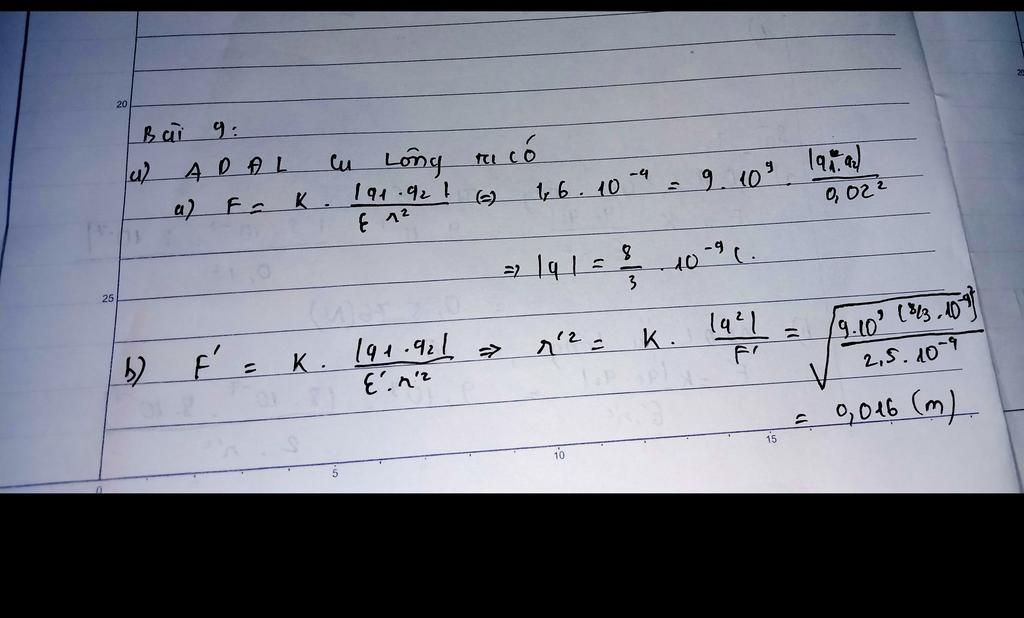 20
Bài 9:
a) A D A L Cu Lông ta có
a) F = K . |q1 . q2| / ε r² (=) 1,6 . 10⁻⁴ = 9 . 10⁹ . |q1 . q2| / 0,02²
=> |q| = 8/3 . 10⁻⁹ C.
25
b) F' = K . |q1 . q2| / ε' . r'² => r'² = K . |q²| / F' = √(9.10⁹ (8/3 . 10⁻⁹)² / 2,5 . 10⁻⁴)
= 0,016 (m)
0 5 10 15